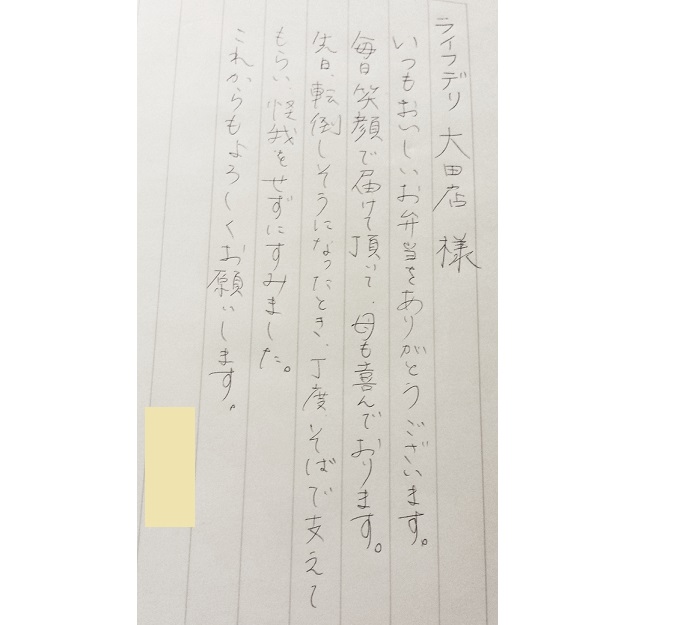 ライフデリ 大田店 様
いつもおいしいお弁当をありがとうございます。
毎日笑顔で届けて頂いて、母も喜んでおります。
先日、転倒しそうになったとき、丁度、そばで支えて
もらい、怪我をせずにすみました。
これからもよろしくお願いします。